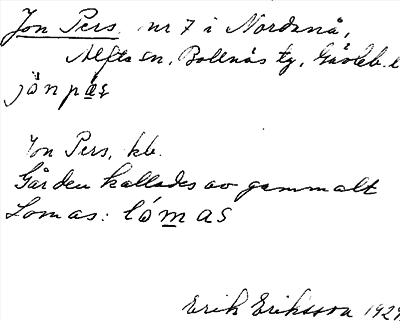 Jon Pers. nr 7 i Nordsnå,
Alfta sn, Bollnäs tg, Gävleb. l
jo̊n pæs
Jon Pers, kb.
Gården kallades av gammalt
Lomas: lómas
Erik Eriksson 1929